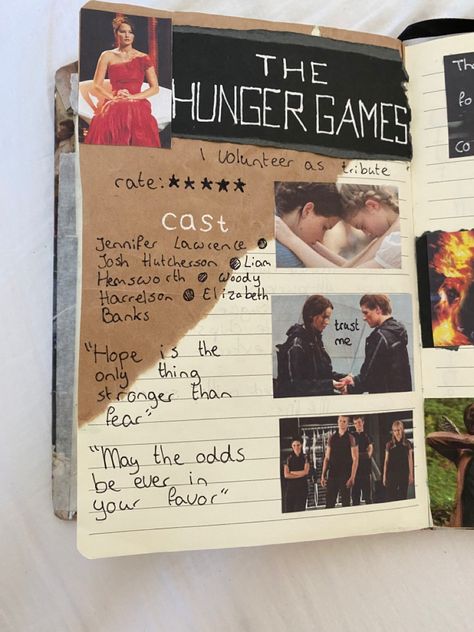 THE
HUNGER GAMES
I volunteer as tribute
rate: ★★★★★
cast
Jennifer Lawrence ●
Josh Hutcherson ● Liam
Hemsworth ● Woody
Harrelson ● Elizabeth
Banks
"Hope is the
only thing
stronger than
fear"
"May the odds
be ever in
your favor"
trust
me
Th
fo
Co